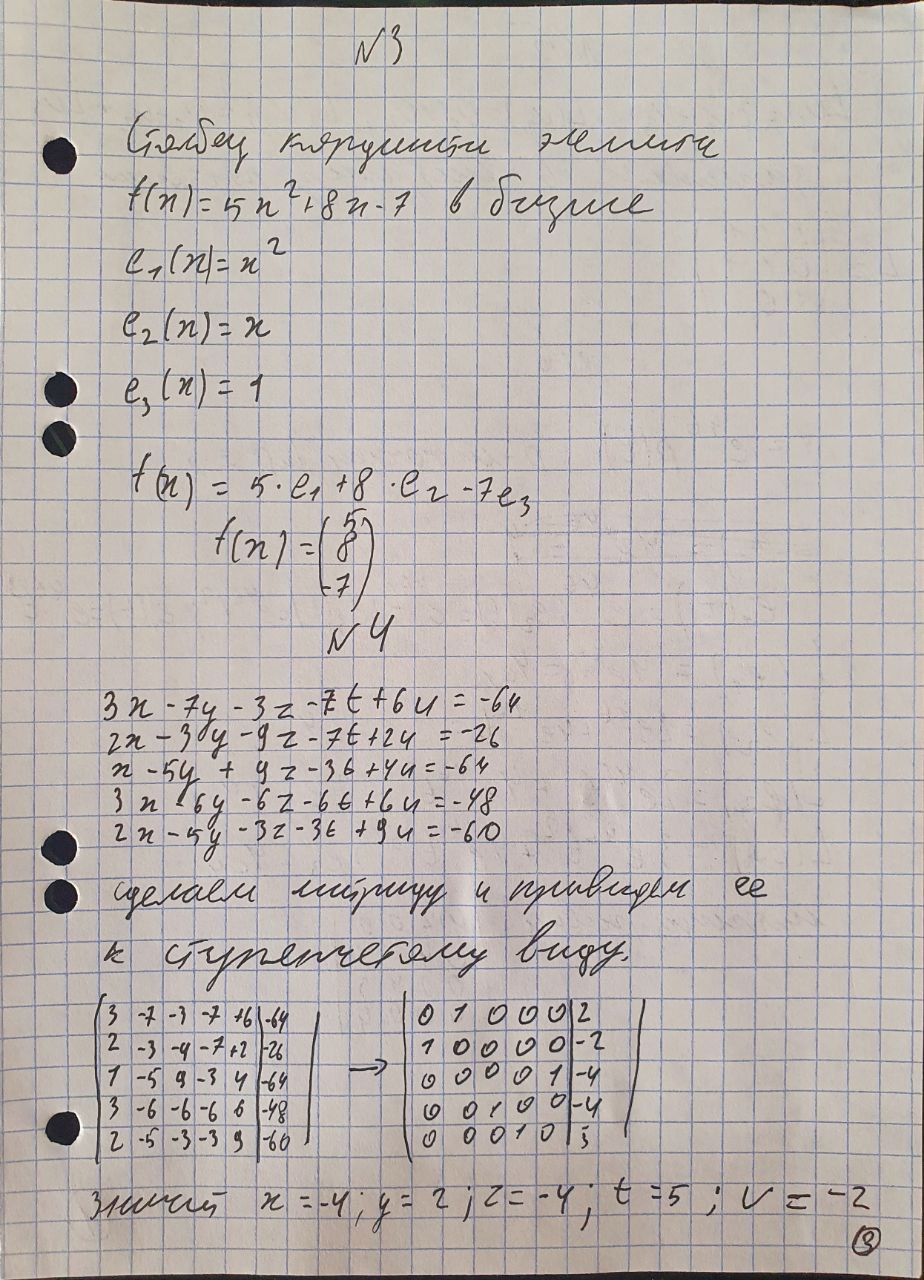 N3
Столбец координат элемента
f(x) = 5x²+8x-7 в базисе
e₁(x)=x²
e₂(x)=x
e₃(x)=1
f(x) = 5·e₁+8·e₂-7e₃
f(x) = (5
8
-7)
N4
3x-7y-3z-7t+6u=-64
2x-3y-9z-7t+2u=-26
x-5y+9z-3t+4u=-64
3x-6y-6z-6t+6u=-48
2x-5y-3z-3t+9u=-60
сделаем матрицу и приведем ее
к ступенчетому виду.
(3 -7 -3 -7 +6|-64) → (0 1 0 0 0|2)
(2 -3 -4 -7 +2|-26) (1 0 0 0 0|-2)
(1 -5 9 -3 4|-64) (0 0 0 0 1|-4)
(3 -6 -6 -6 6|-48) (0 0 1 0 0|-4)
(2 -5 -3 -3 9|-60) (0 0 0 1 0|5)
значит x=-4; y=2; z=-4; t=5; v=-2
3